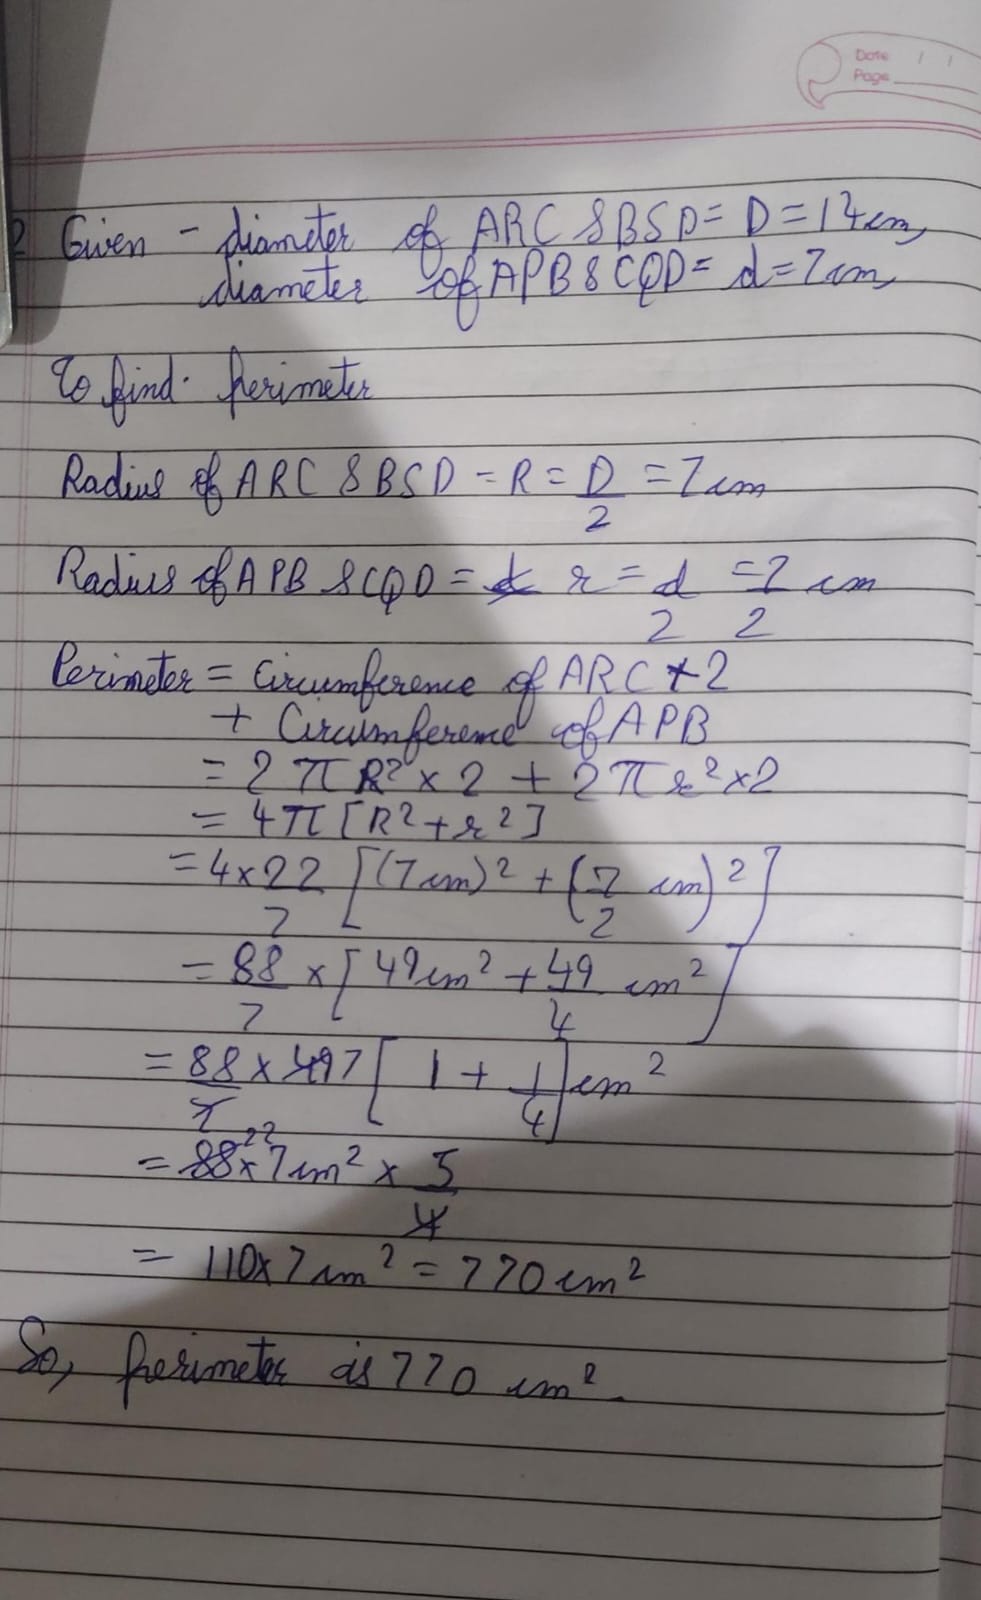 Date / /
Page
2 Given - diameter of ARC & BSD = D = 14 cm,
diameter of APB & CQD = d = 7 cm,
To find. Perimeter
Radius of ARC & BSD = R = D/2 = 7 cm
Radius of APB & CQD = r = d/2 = 7/2 cm
Perimeter = Circumference of ARC * 2
+ Circumference of APB
= 2 π R² × 2 + 2 π r² × 2
= 4π [R² + r²]
= 4 × 22/7 [(7 cm)² + (7/2 cm)²]
= 88/7 × [49 cm² + 49/4 cm²]
= 88/7 × 49 7 [1 + 1/4] cm²
= 88 22 × 7 cm² × 5/4
= 110 × 7 cm² = 770 cm²
So, perimeter is 770 cm².